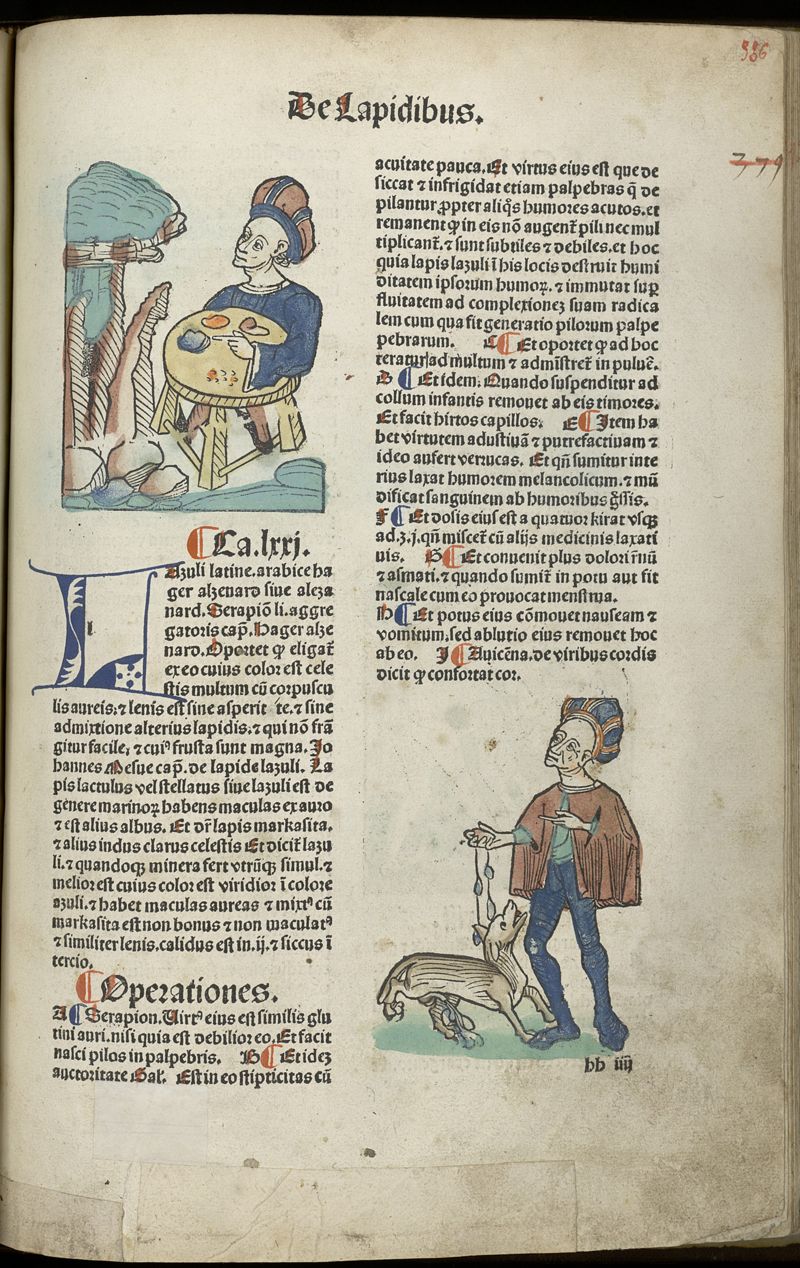 336
De Lapidibus.
379
Ca. lxxj.
LAzuli latine. arabice ha
ger alzenard siue aleza
nard. Serapiō li. aggre
gatoris cap̄. Hager alze
nard. Oportet ꝙ eligat᷑
ex eo cuius color est cele
stis multum cū corpuscu
lis aureis. ⁊ lenis est sine asperit te. ⁊ sine
admixtione alterius lapidis. ⁊ qui nō frā
gitur facile, ⁊ cuiꝰ frusta sunt magna. Jo
hannes Mesue cap̄. de lapide lazuli. La
pis lactulus vel stellatus siue lazuli est de
genere marinoꝝ habens maculas ex auro
⁊ est alius albus. Et dr̄ lapis markasita.
⁊ alius indus clarus celestis Et dicit᷑ lazu
li. ⁊ quandoqꝫ minera fert vtrūqꝫ simul. ⁊
melior est cuius color est viridior ī colore
azuli. ⁊ habet maculas aureas ⁊ mixtꝰ cū
markasita est non bonus ⁊ non maculatꝰ
⁊ similiter lenis. calidus est in .ij. ⁊ siccus ī
tercio.
Operationes.
A Serapion. Uirtꝰ eius est similis glu
tini auri. nisi quia est debilior eo. Et facit
nasci pilos in palpebris. B Et idez
auctoritate Gal'. Est in eo stipticitas cū
acuitate pauca. Et virtus eius est que de
siccat ⁊ infrigidat etiam palpebras q̄ de
pilantur ꝓpter aliq̄s humores acutos. et
remanent ꝙ in eis nō augent᷑ pili nec mul
tiplicant᷑. ⁊ sunt subtiles ⁊ debiles. et hoc
quia lapis lazuli ī his locis destruit humi
ditatem ipsorum humoꝝ. ⁊ immutat suꝑ
fluitatem ad complexionez suam radica
lem cum qua fit generatio pilorum palpe
pebrarum. C Et oportet ꝙ ad hoc
teratur ad multum ⁊ admīstret᷑ in puluē.
D Et idem. Quando suspenditur ad
collum infantis remouet ab eis timores.
Et facit hirtos capillos. E Item ha
bet virtutem adustiuā ⁊ putrefactiuam ⁊
ideo aufert verrucas. Et qn̄ sumitur inte
rius laxat humorem melancolicum. ⁊ mū
dificat sanguinem ab humoribus g̃ssis.
F Et dosis eius est a quatuor kirat vsqꝫ
ad .ʒ. j. qn̄ miscet᷑ cū alijs medicinis laxati
uis. G Et conuenit plus dolori r̄nū
⁊ asmati. ⁊ quando sumit᷑ in potu aut fit
nascale cum eo prouocat menstrua.
H Et potus eius cōmouet nauseam ⁊
vomitum. sed ablutio eius remouet hoc
ab eo. J Auicēna. de viribus cordis
dicit ꝙ confortat cor.
bb iiij